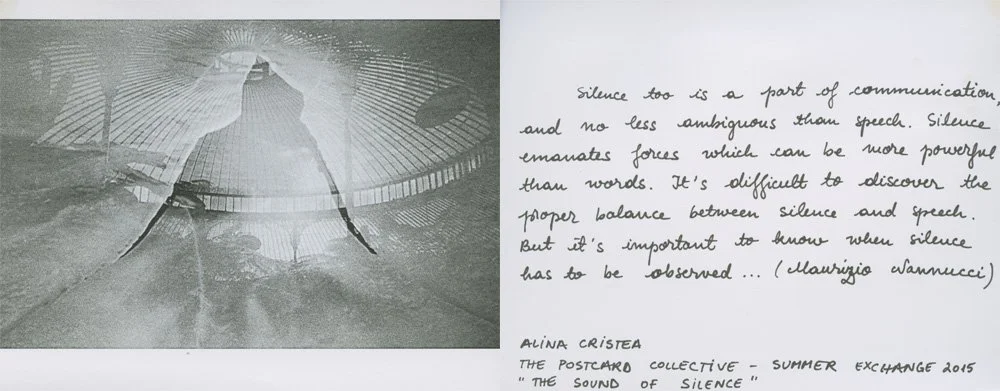 Silence too is a part of communication,
and no less ambiguous than speech. Silence
emanates forces which can be more powerful
than words. It's difficult to discover the
proper balance between silence and speech.
But it's important to know when silence
has to be observed ... (Maurizio Nannucci)
ALINA CRISTEA
THE POSTCARD COLLECTIVE - SUMMER EXCHANGE 2015
" THE SOUND OF SILENCE "